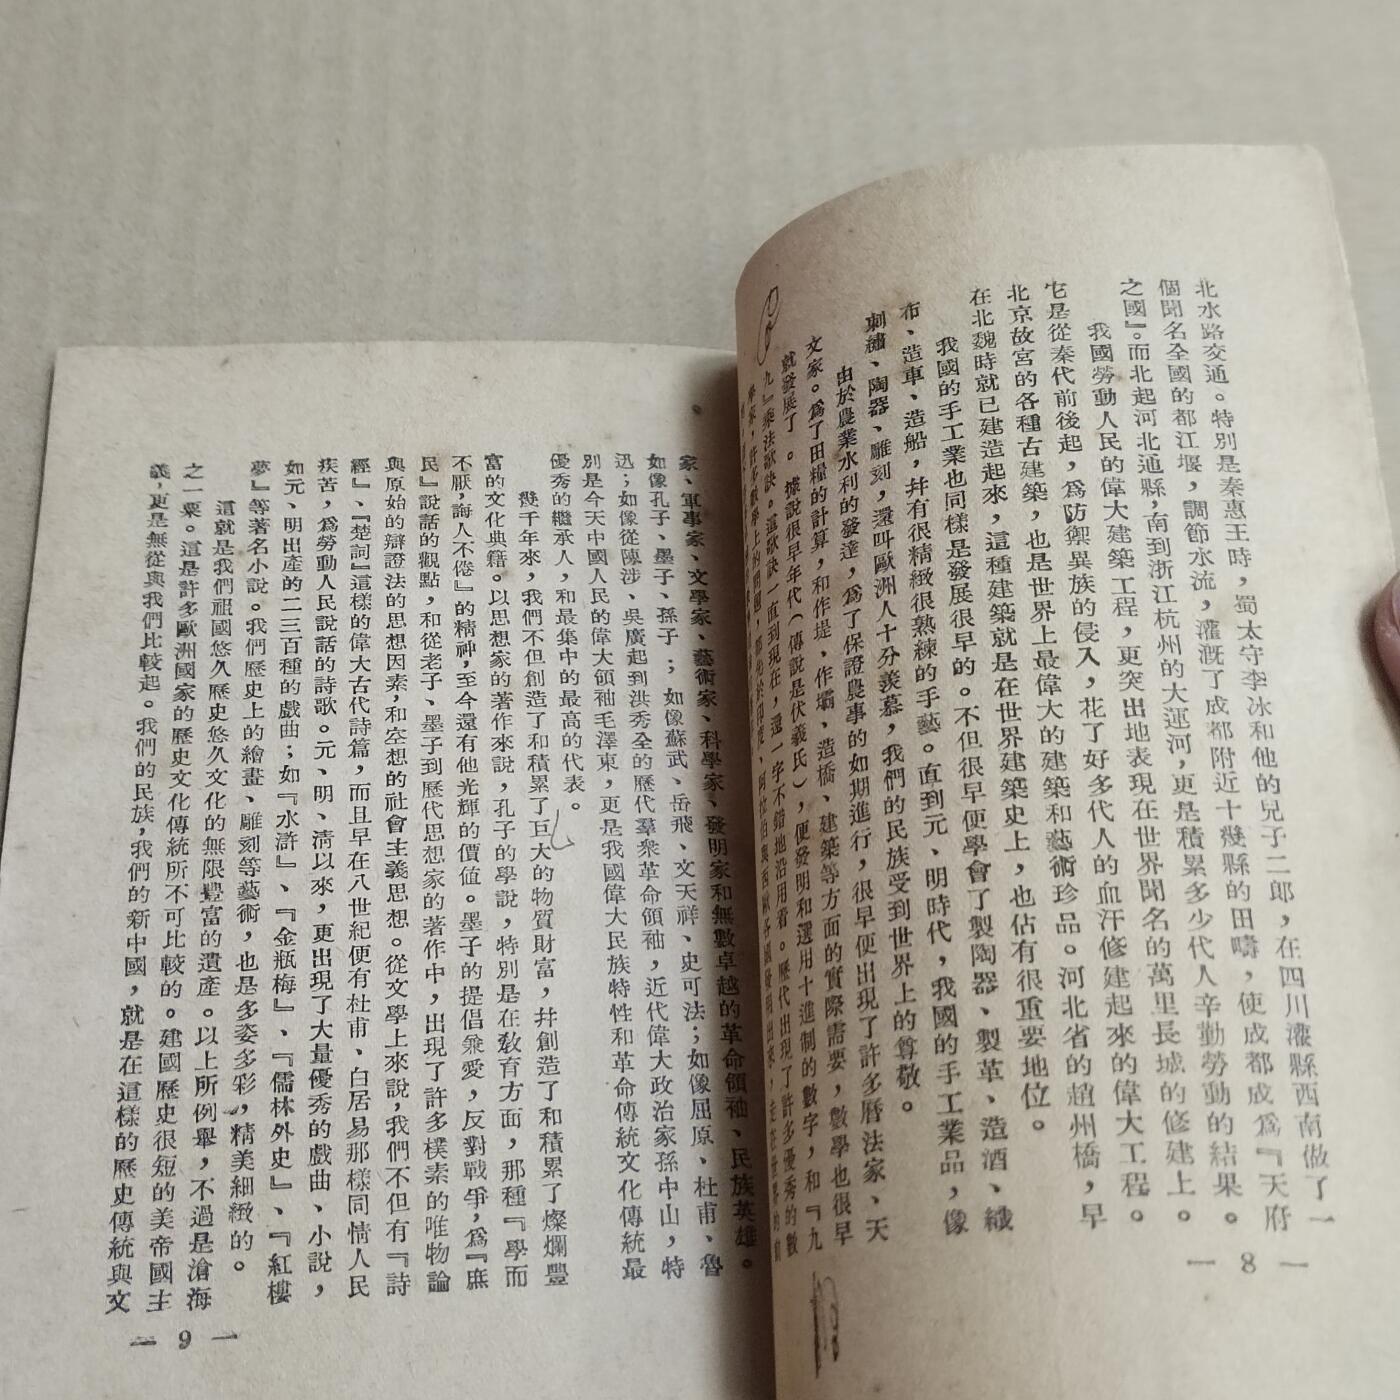 北水路交通。特別是秦惠王時，蜀太守李冰和他的兒子二郎，在四川灌縣西南做了一
個聞名全國的都江堰，調節水流，灌溉了成都附近十幾縣的田疇，使成都成爲『天府
之國』。而北起河北通縣，南到浙江杭州的大運河，更是積累多少代人辛勤勞動的結果。
我國勞動人民的偉大建築工程，更突出地表現在世界聞名的萬里長城的修建上。
它是從秦代前後起，爲防禦異族的侵入，花了好多代人的血汗修建起來的偉大工程。
北京故宮的各種古建築，也是世界上最偉大的建築和藝術珍品。河北省的趙州橋，早
在北魏時就已建造起來，這種建築就是在世界建築史上，也佔有很重要地位。
我國的手工業也同樣是發展很早的。不但很早便學會了製陶器、製革、造酒、織
布、造車、造船，幷有很精緻很熟練的手藝。直到元、明時代，我國的手工業品，像
刺繡、陶器、雕刻，還叫歐洲人十分羨慕，我們的民族受到世界上的尊敬。
由於農業水利的發達，爲了保證農事的如期進行，很早便出現了許多曆法家、天
文家。爲了田糧的計算，和作堤，作壩、造橋、建築等方面的實際需要，數學也很早
就發展了。據說很早年代（傳說是伏義氏），便發明和選用十進制的數字，和『九
九』乘法歌訣。這歌訣一直到現在，還一字不錯地沿用着。歷代出現了許多優秀的數
學家，許多數學上的問題，都先於印度、阿拉伯與西歐各國發現出來，走在世界的前
— 8 —
家、軍事家、文學家、藝術家、科學家、發明家和無數卓越的革命領袖、民族英雄。
如像孔子、墨子、孫子；如像蘇武、岳飛、文天祥、史可法；如像屈原、杜甫、魯
迅；如像從陳涉、吳廣起到洪秀全的歷代羣衆革命領袖，近代偉大政治家孫中山，特
別是今天中國人民的偉大領袖毛澤東，更是我國偉大民族特性和革命傳統文化傳統最
優秀的繼承人，和最集中的最高的代表。
幾千年來，我們不但創造了和積累了巨大的物質財富，幷創造了和積累了燦爛豐
富的文化典籍。以思想家的著作來說，孔子的學說，特別是在敎育方面，那種『學而
不厭，誨人不倦』的精神，至今還有他光輝的價值。墨子的提倡乘愛，反對戰爭，爲『庶
民』說話的觀點，和從老子、墨子到歷代思想家的著作中，出現了許多樸素的唯物論
與原始的辯證法的思想因素，和空想的社會主義思想。從文學上來說，我們不但有『詩
經』、『楚詞』這樣的偉大古代詩篇，而且早在八世紀便有杜甫、白居易那樣同情人民
疾苦，爲勞動人民說話的詩歌。元、明、清以來，更出現了大量優秀的戲曲、小說，
如元、明出產的二三百種的戲曲；如『水滸』、『金瓶梅』、『儒林外史』、『紅樓
夢』等著名小說。我們歷史上的繪畫、雕刻等藝術，也是多姿多彩，精美細緻的。
這就是我們祖國悠久歷史悠久文化的無限豐富的遺產。以上所例舉，不過是滄海
之一粟。這是許多歐洲國家的歷史文化傳統所不可比較的。建國歷史很短的美帝國主
義，更是無從與我們比較起。我們的民族，我們的新中國，就是在這樣的歷史傳統與文
— 9 —